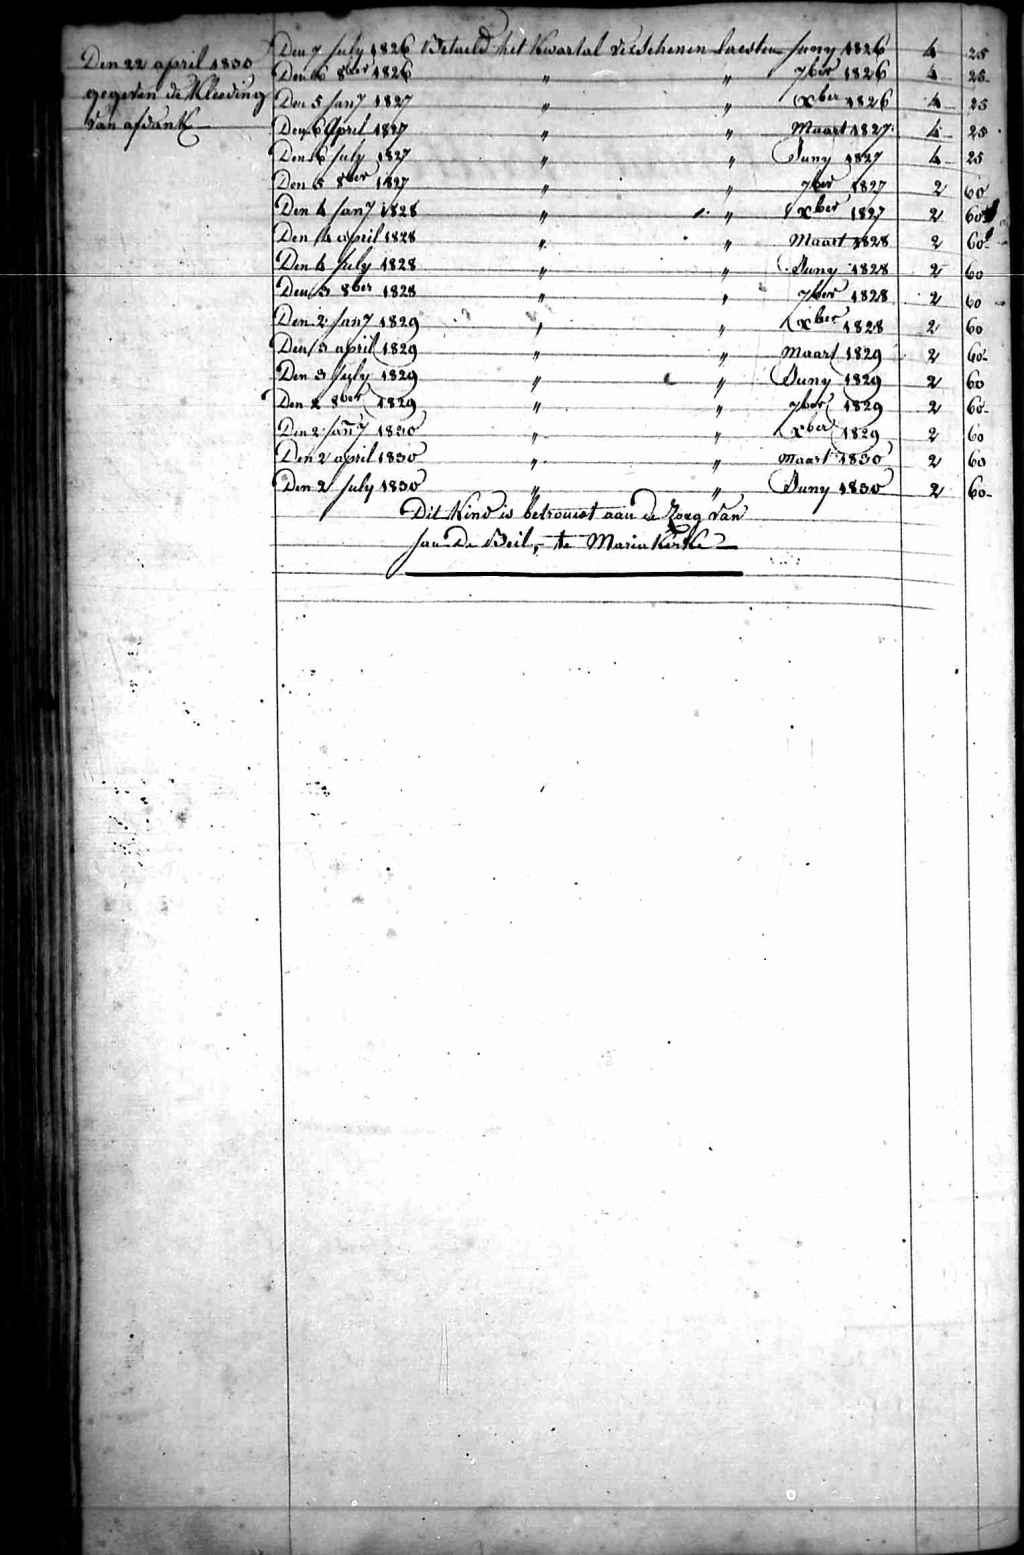 Den 22 april 1830
gegeven de Kleeding
van afdank
Den 7 July 1826 Betaeld het Kwartal verschenen laesten Juny 1826 4 25
Den 6 8ber 1826 " " 7ber 1826 4 25
Den 5 Jany 1827 " " xber 1826 4 25
Den 6 April 1827 " " Maart 1827 4 25
Den 6 July 1827 " " Juny 1827 4 25
Den 5 8ber 1827 " " 7ber 1827 2 60
Den 4 Jany 1828 " " xber 1827 2 60
Den 4 april 1828 " " Maart 1828 2 60
Den 4 July 1828 " " Juny 1828 2 60
Den 3 8ber 1828 " " 7ber 1828 2 60
Den 2 Jany 1829 " " xber 1828 2 60
Den 3 april 1829 " " Maart 1829 2 60
Den 3 July 1829 " " Juny 1829 2 60
Den 2 8ber 1829 " " 7ber 1829 2 60
Den 2 Jany 1830 " " xber 1829 2 60
Den 2 april 1830 " " Maart 1830 2 60
Den 2 July 1830 " " Juny 1830 2 60
Dit Kind is betrouwt aan de Zorg van
Jan De Beil, te Mariakerke